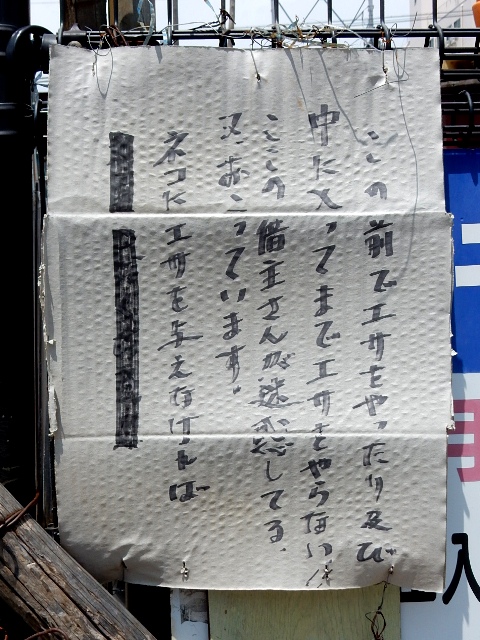 ここの前でエサをやったり及び
中に入ってまでエサをやらない
ここの借主さんが迷惑してる、
又、おこっています。
ネコにエサを与えなければ
入